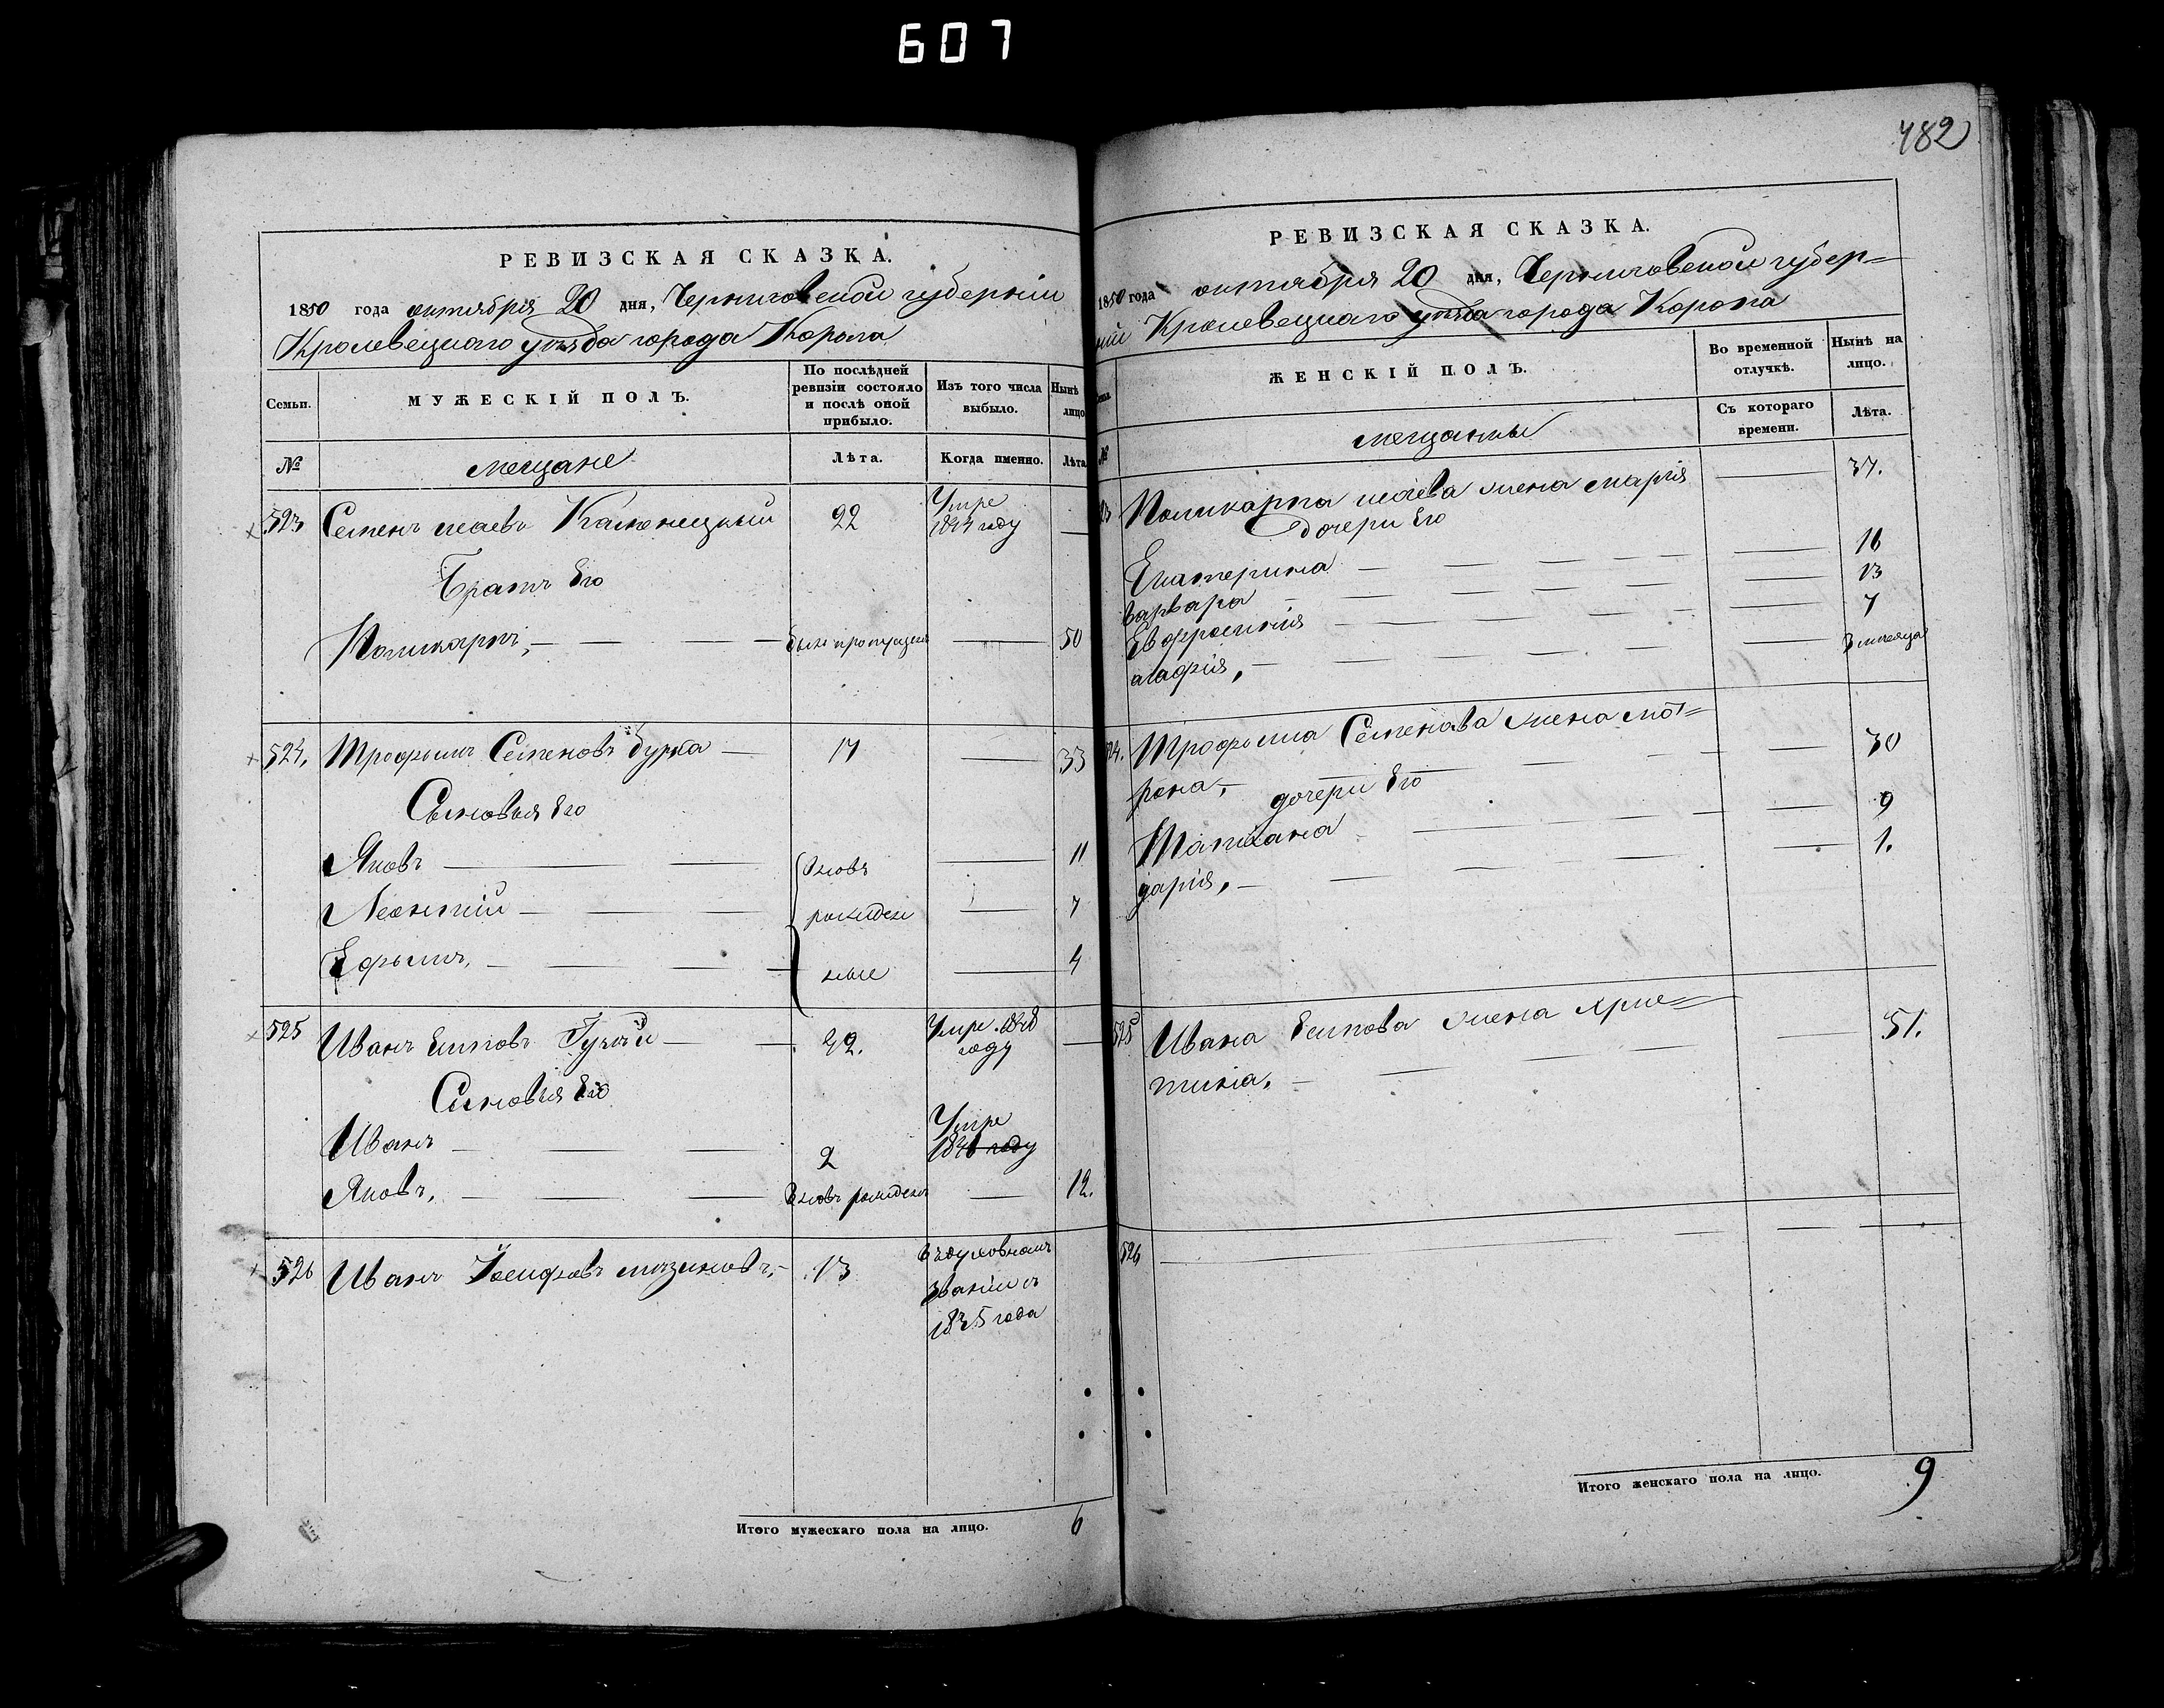 607
РЕВИЗСКАЯ СКАЗКА.
1850 года октября 20 дня, Черниговской губерніи
Кролевецкаго уѣзда города Коропа
Семьи.
МУЖЕСКІЙ ПОЛЪ.
По послѣдней
ревизіи состояло
и послѣ оной
прибыло.
Изъ того числа
выбыло.
Нынѣ
лицо
№
мещане
Лѣта.
Когда именно.
Лѣта
523 Семенъ исаевъ 22 Умре
году
Братъ Его
Поликарпъ, былъ пропущенъ 50
524. Трофымъ Семеновъ бурка 17 33
Сыновья Его
Яковъ Вновь 11
Леонтій рожден 7
Ефымъ, ные 4
525 Иванъ Еиповъ 42. Умре 1848
году
Синовья Его
Иванъ 2 Умре
году
Яковъ, Вновь рожденъ 12.
526 Иванъ 13 въ духовномъ
званіи съ
1845 года
Итого мужескаго пола на лицо. 6
482
РЕВИЗСКАЯ СКАЗКА.
1850 года октября 20 дня, Черниговской губер=
ніи Кролевецкаго уѣзда города Коропа
ЖЕНСКІЙ ПОЛЪ.
Во временной
отлучкѣ.
Нынѣ на
лицо.
№
мещанки
Съ котораго
времени.
Лѣта.
23 Поликарпа исаева жена марія 37.
дочери Его
Екатерина 16
варвара 13
Евфросинія 7
агафія, 3 месяца
24. Трофыма Семенова жена мот=
рона, 30
дочери Его
Татіана 9
дарія, 1.
525 Ивана жена хрис=
тинія, 51.
526
Итого женскаго пола на лицо. 9